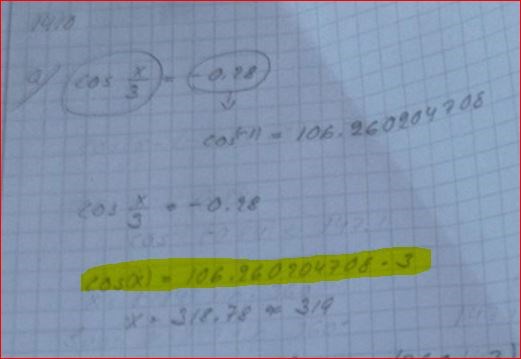 1410
a) cos x/3 = -0.28
cos(-1) = 106.260204708
cos x/3 = -0.28
cos(x) = 106.260204708 · 3
x = 318.78 ≈ 319